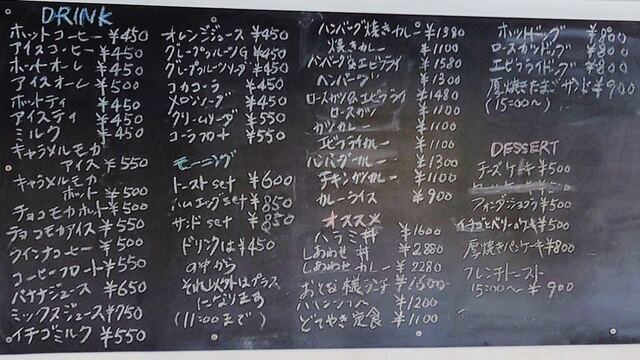 DRINK
ホットコーヒー ¥450
アイスコーヒー ¥450
ホットオーレ ¥450
アイスオーレ ¥500
ホットティ ¥450
アイスティ ¥450
ミルク ¥450
キャラメルモカ
アイス ¥550
キャラメルモカ
ホット ¥500
チョコモカホット ¥500
チョコモカアイス ¥550
ウインナコーヒー ¥500
コーヒーフロート ¥550
バナナジュース ¥650
ミックスジュース ¥750
イチゴミルク ¥550
オレンジジュース ¥450
グレープフルーツG ¥450
グレープフルーツソーダ ¥450
コカコーラ ¥450
メロンソーダ ¥450
クリームソーダ ¥550
コーラフロート ¥550
モーニング
トーストset ¥600
ハムエッグset ¥850
サンドset ¥850
ドリンクは¥450
の中から
それ以外はプラス
になります
(11:00まで)
ハンバーグ焼きカレー ¥1380
焼きカレー ¥1100
ハンバーグ&エビフライ ¥1580
ハンバーグ ¥1300
ロースカツ&エビフライ ¥1480
ロースカツ ¥1100
カツカレー ¥1100
エビフライカレー ¥1100
ハンバーグカレー ¥1300
チキンカツカレー ¥1100
カレーライス ¥900
オススメ
ハラミ丼 ¥1600
しあわせ丼 ¥2880
しあわせカレー ¥2280
おとな様ランチ ¥1600
¥1200
どてやき定食 ¥1100
ホットドッグ ¥800
ロースカツドッグ ¥800
エビフライドッグ ¥800
厚焼きたまごサンド ¥900
(15:00〜)
DESSERT
チーズケーキ ¥500
フォンダンショコラ ¥500
イチゴとベリーのケーキ ¥500
厚焼きパンケーキ ¥800
フレンチトースト
15:00〜 ¥900